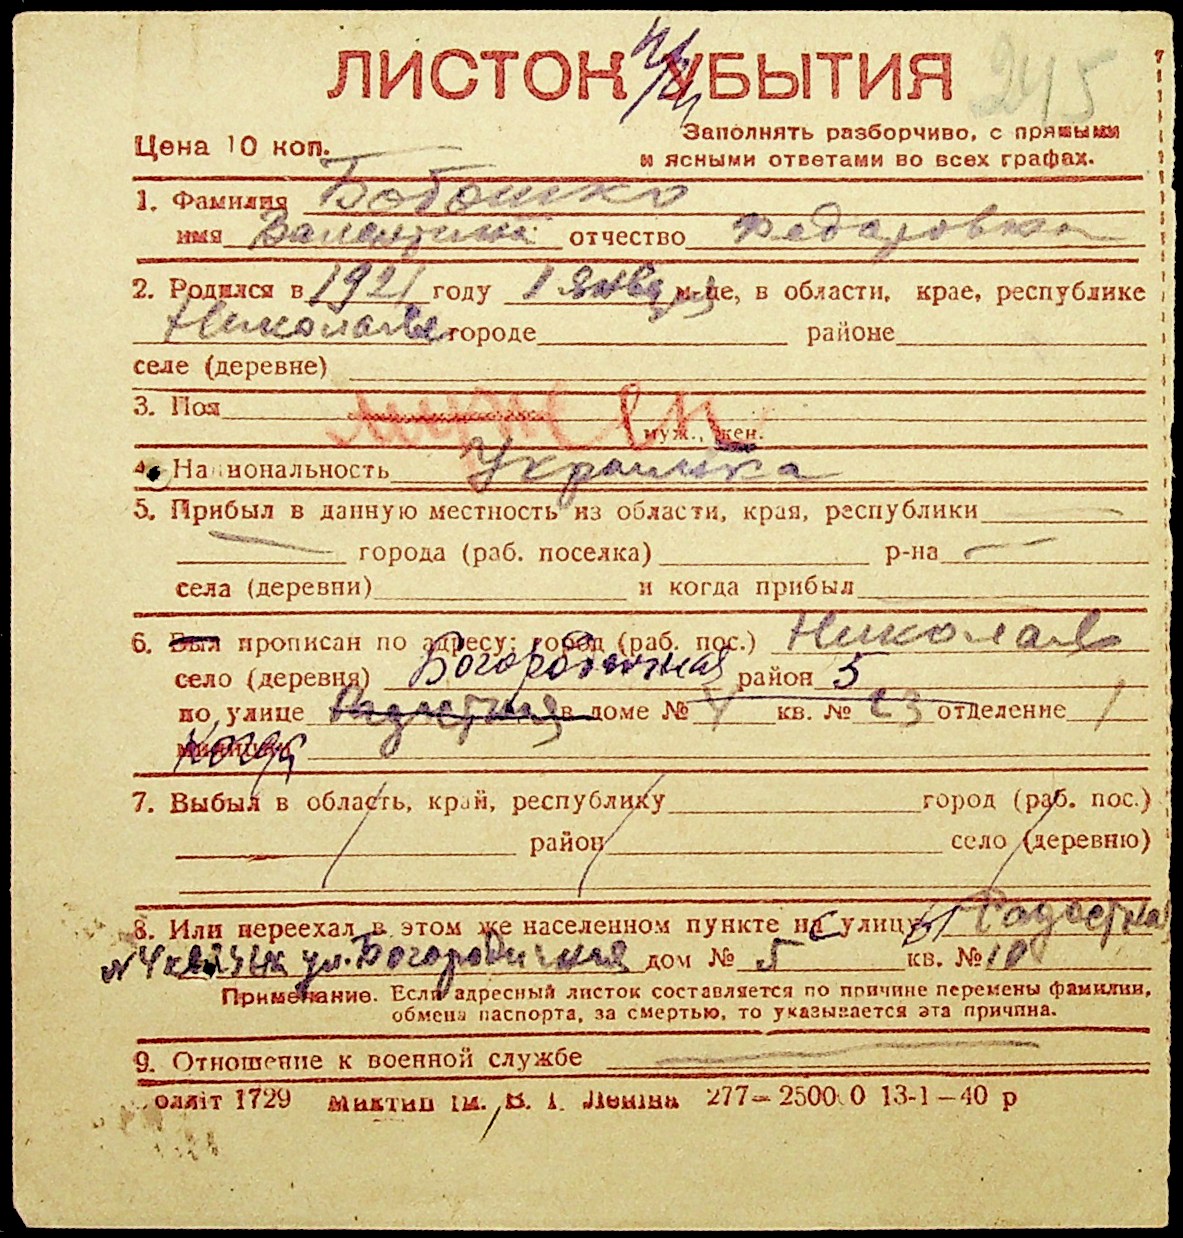 ЛИСТОК УБЫТИЯ
245
Цена 10 коп.
Заполнять разборчиво, с прямыми
и ясными ответами во всех графах.
1. Фамилия Бобошко
имя Валентина отчество Федаровна
2. Родился в 1921 году 1 января м-це, в области, крае, республике
Николаев городе районе
селе (деревне)
3. Пол жен
муж., жен.
4. Национальность Украинка
5. Прибыл в данную местность из области, края, республики
города (раб. поселка) р-на
села (деревни) и когда прибыл
6. Был прописан по адресу: город (раб. пос.) Николаев
село (деревня) Богородичная район 5
по улице Радастная в доме № 4 кв. № 23 отделение 1
милиции
7. Выбыл в область, край, республику город (раб. пос.)
район село (деревню)
8. Или переехал в этом же населенном пункте на с улицу Радастная
№ 4 ул. Богородичная дом № 5 кв. № 10
Примечание. Если адресный листок составляется по причине перемены фамилии,
обмена паспорта, за смертью, то указывается эта причина.
9. Отношение к военной службе
олліт 1729 Миктип ім. В. І. Леніна 277—2500 0 13-1—40 р